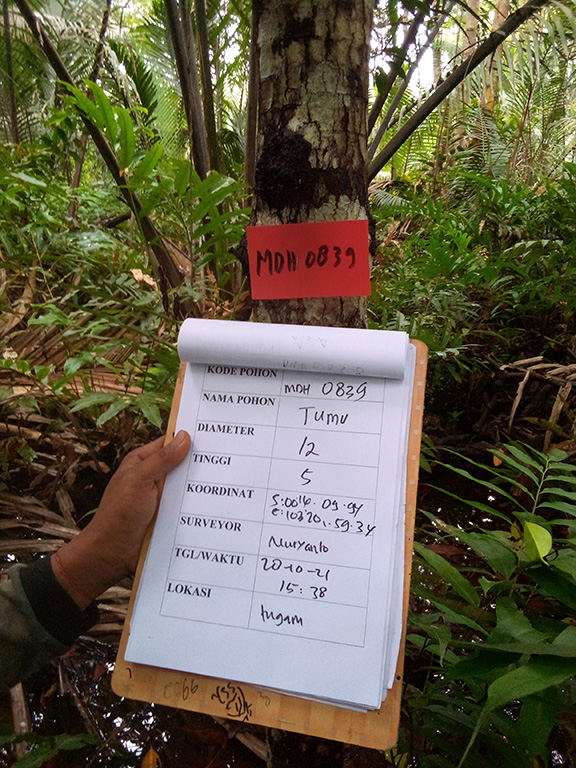 MDH 0839
KODE POHON MDH 0839
NAMA POHON TUMU
DIAMETER 12
TINGGI 5
KOORDINAT S:00'16.09.94
E:103'20.59.34
SURVEYOR Nuryanto
TGL/WAKTU 20-10-21
15:38
LOKASI tugam